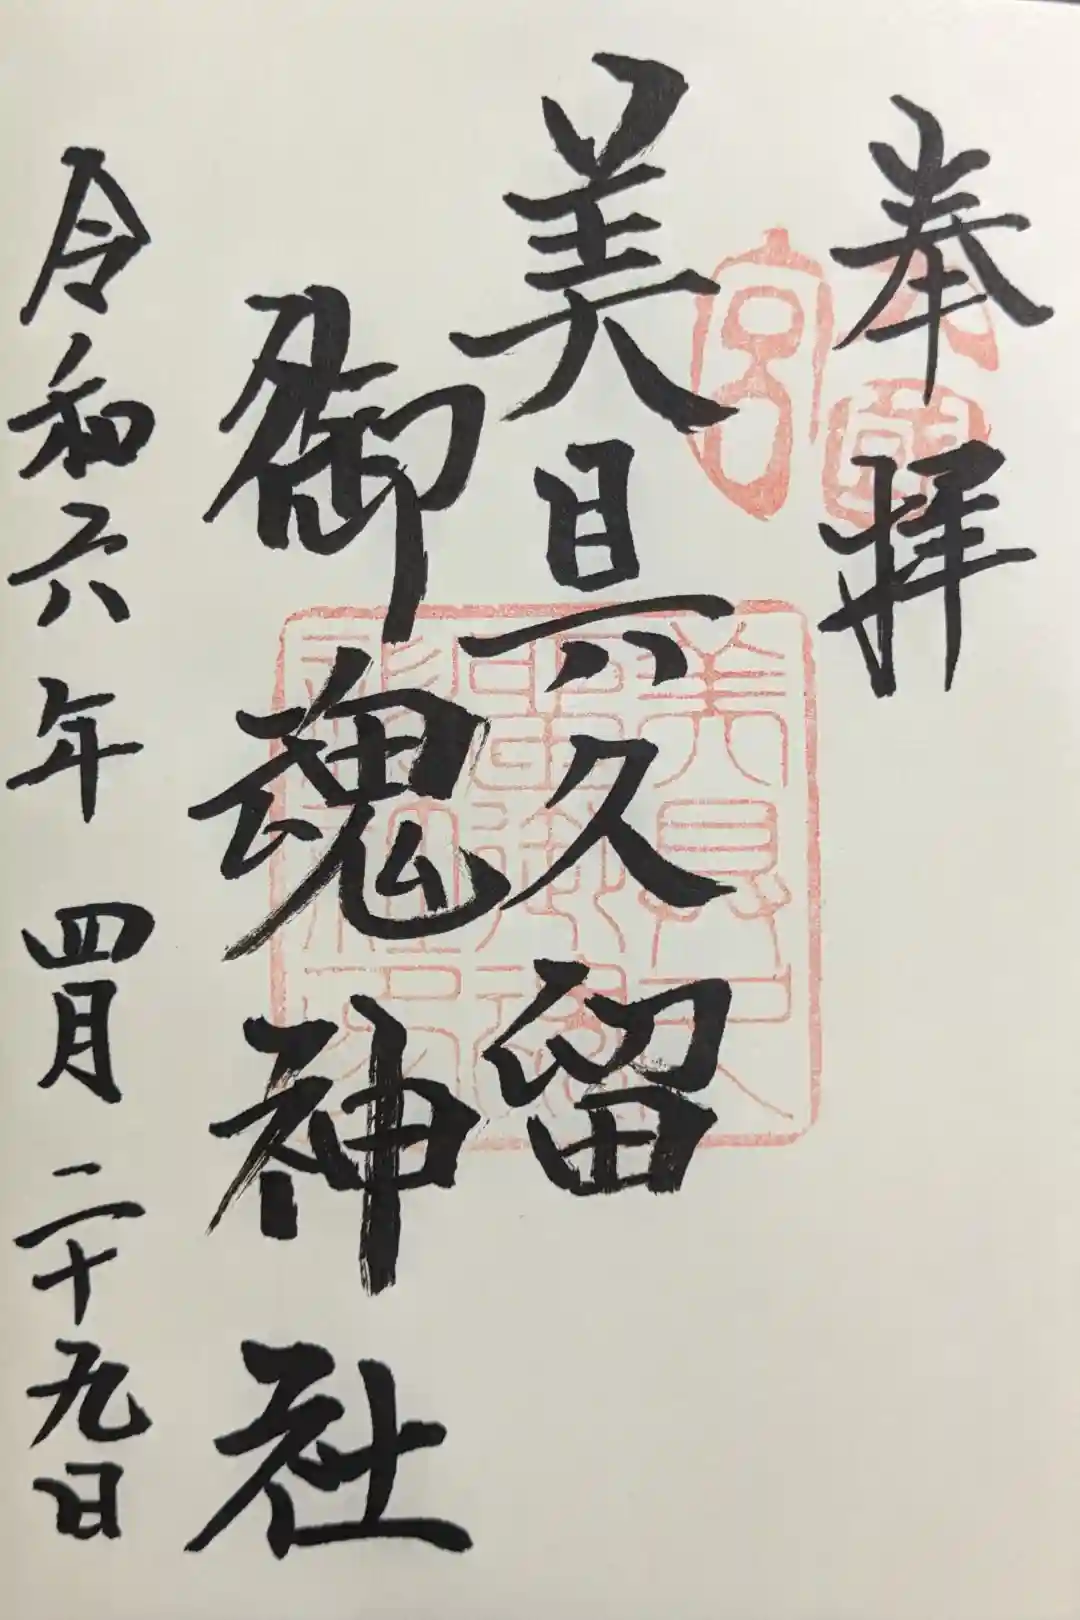 奉拝
美具久留
御魂神社
令和六年四月二十九日